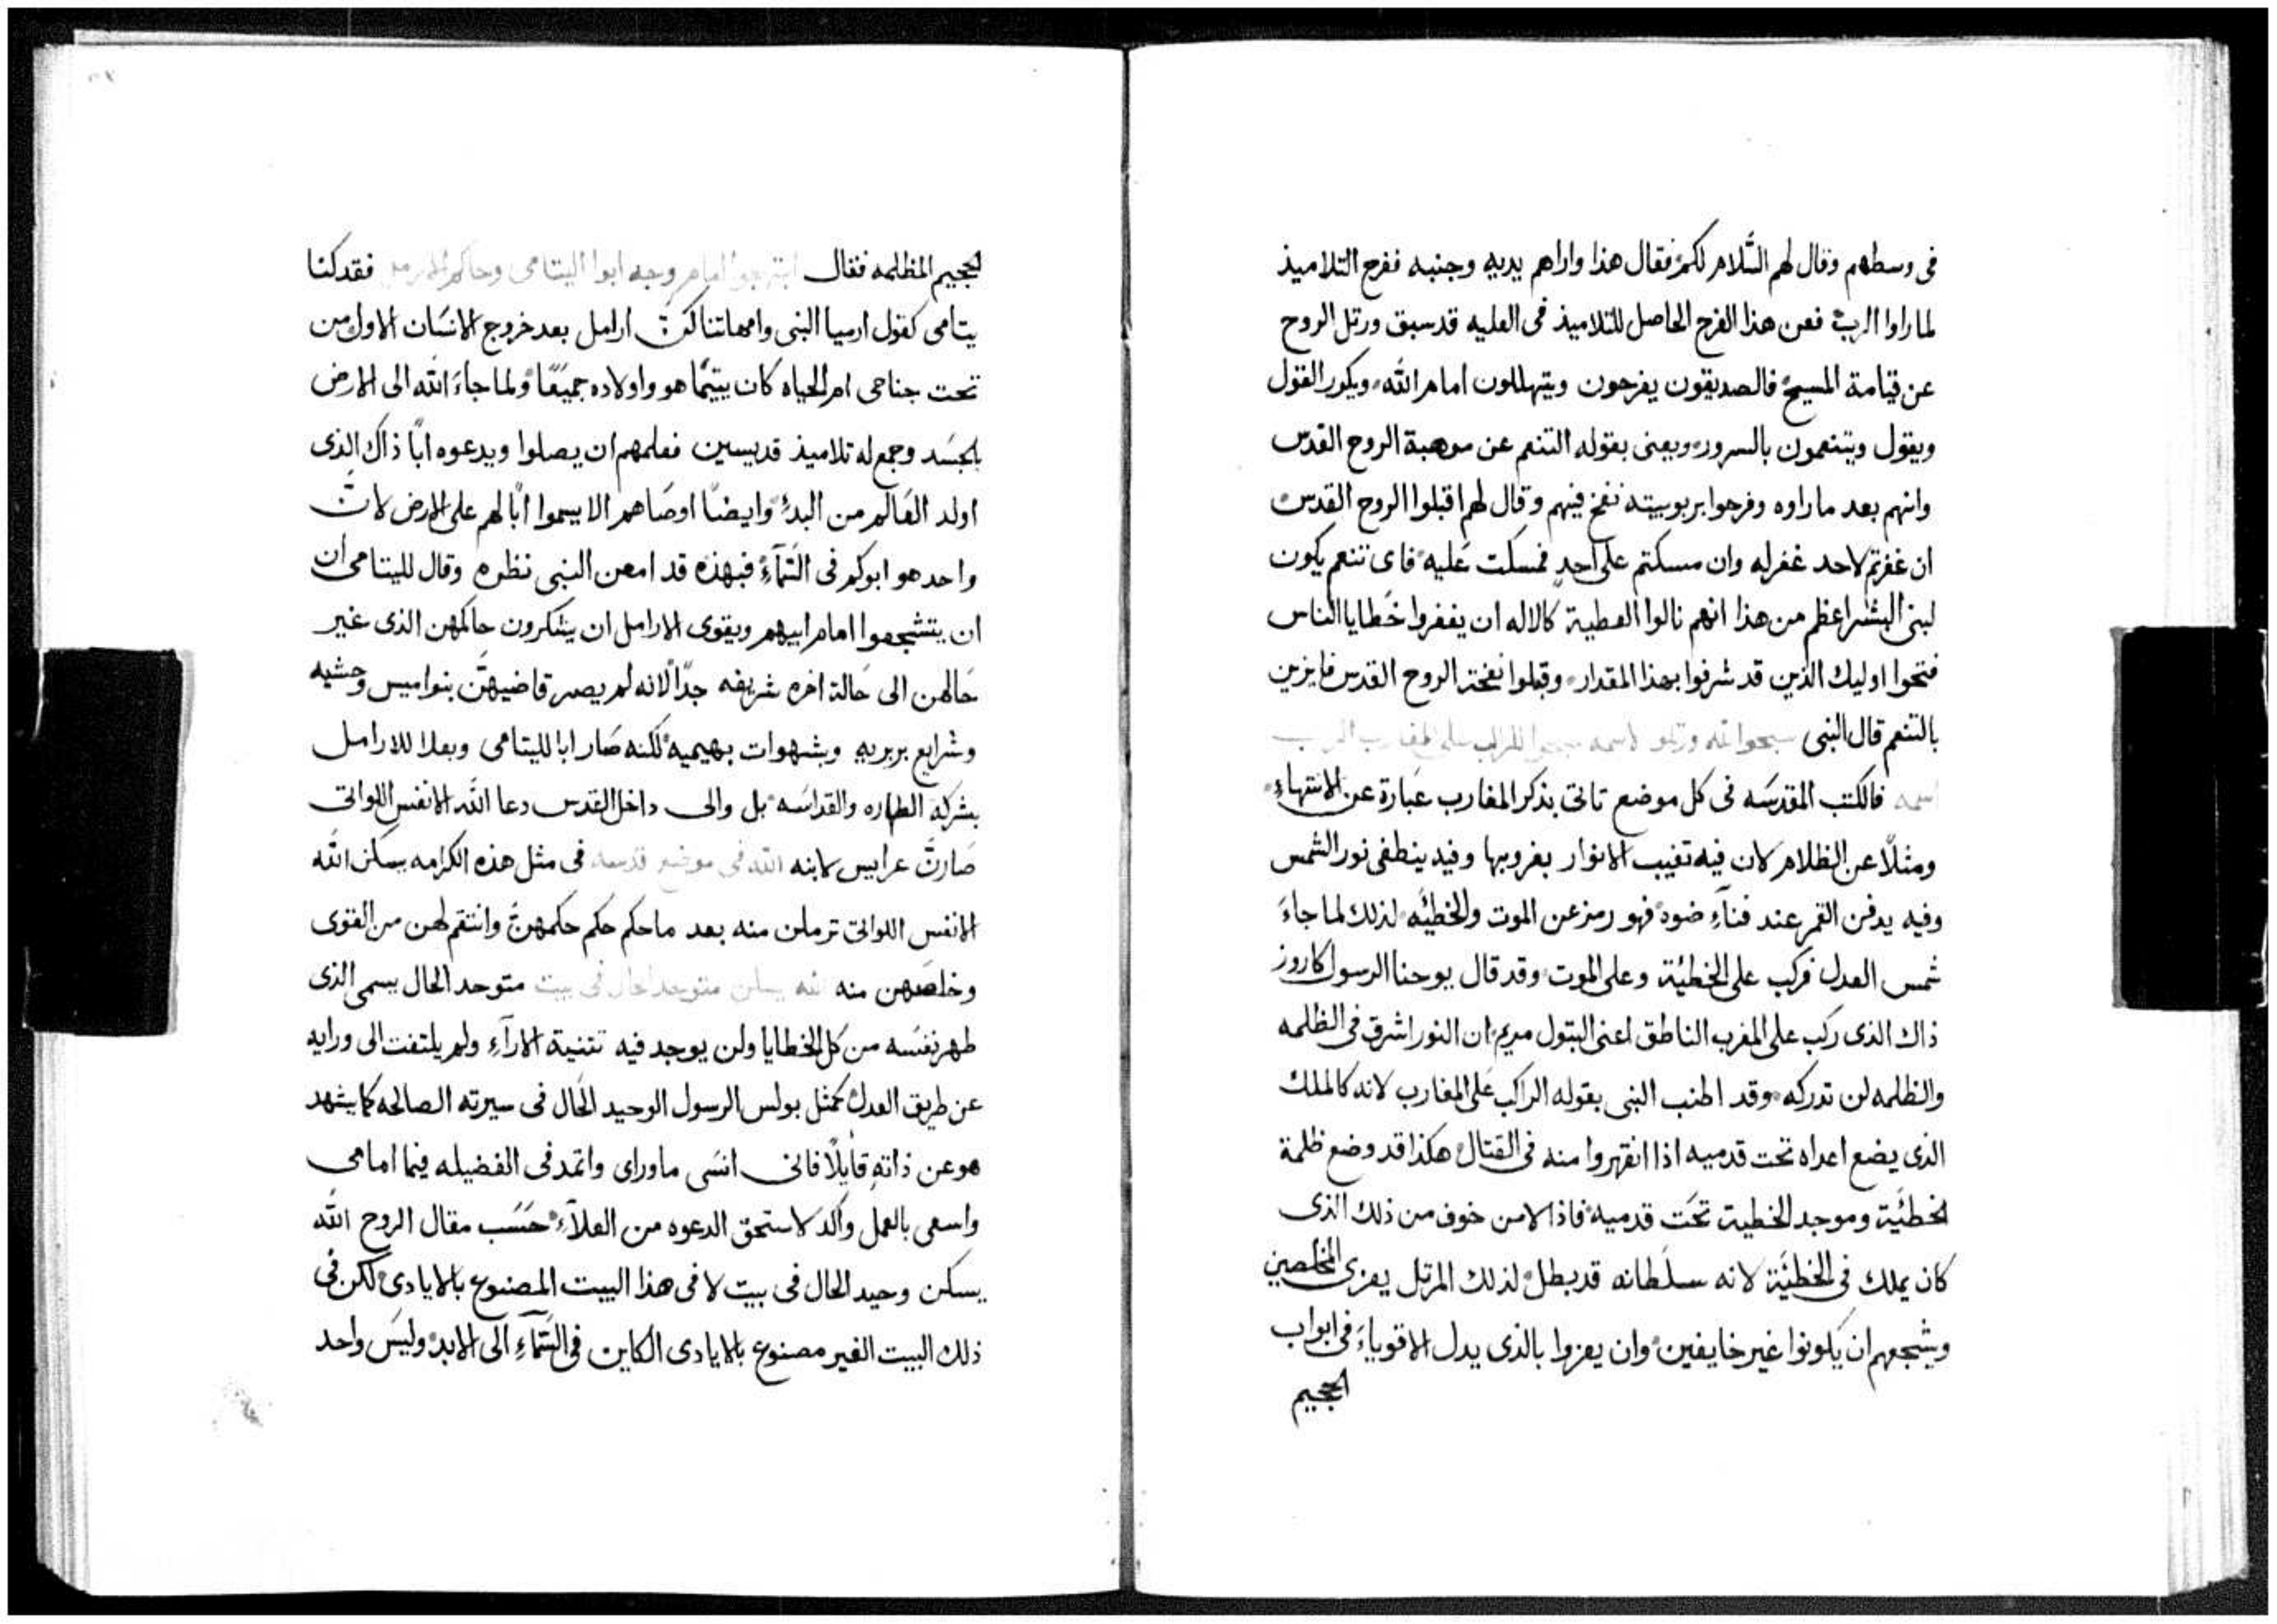 فى وسطهم وقال لهم السَّلام لكم فقال هذا واراهم يديه وجنبه ففرح التلاميذ
لما راوا الرب فعن هذا الفرح الحاصل للتلاميذ فى العليه قد سبق ورتل الروح
عن قيامة المسيح فالصديقون يفرحون ويتهللون امام الله ويكرر القول
ويقول ويتنعمون بالسرور ويعنى بقوله التنعم عن موهبة الروح القدس
وانهم بعد ما راوه وفرحوا بربوبيته نفخ فيهم وقال لهم اقبلوا الروح القدس
ان غفرتم لاحد غفر له وان مسكتم على احدٍ فمسكت عَليه فاى تنعم يكون
لبنى البشر اعظم من هذا انهم نالوا العطية كالاله ان يغفروا خَطايا الناس
فتحوا اوليك الذين قد شرفوا بهذا المقدار وقبلوا نفخة الروح القدس فايزين
بالتنعم قال النبى سبحوا لله ورتلوا لاسمه على المغارب الرب
اسمه فالكتب المقدسَه فى كل موضع تاتى بذكر المغارب عبَارة عن الانتهاءِ
ومثلًا عن الظلام لان فيه تغيب الانوار بغروبها وفيه ينطفى نور الشمس
وفيه يدفن القمر عند فنآءِ ضوه فهو رمز عن الموت والخطيَّه لذلك لما جاءَ
شمس العدل فركب على الخطيَّة وعلى الموت وقد قال يوحنا الرسول كاروز
ذاك الذى ركب على المغرب الناطق اعنى البتول مريم ان النور اشرق فى الظلمه
والظلمه لن تدركه وقد اطنب النبى بقوله الراكب عَلى المغارب لانه كالملك
الذى يضع اعداه تحت قدميه اذا انقهروا منه فى القتال هكذا قد وضع ظلمة
الخطيَّة وموجد الخطية تحَت قدميه فاذا لا من خوف من ذلك الذى
كان يملك فى الخطيَّة لانه سلَطانه قد بطل لذلك المرتل يعزى المخلصين
ويشجعهم ان يكونوا غير خايفين وان يعزوا بالذى يدل الاقوياءَ فى ابواب
الجحيم
الجحيم المظلمه فقال امام وجه ابوا اليتامى وحاكم الارامل فقد كنا
يتامى كقول ارميا النبى وامهاتنا كنَّ ارامل بعد خروج الانسَان الاول من
تحت جناحى ام الحياه كان يتيمًا هو واولاده جميَعًا ولما جاءَ الله الى الارض
بالجسَد وجمع له تلاميذ قديسين فعلمهم ان يصلوا ويدعوه ابًا ذاك الذى
اولد العَالم من البدءِ وايضًا اوصَاهم الا يسموا ابًا لهم على الارض لانَّ
واحد هو ابوكم فى السَّمآءِ فبهذه قد امعن النبى نظره وقال لليتامى ان
ان يتشجعوا امام ابيهم ويقوى الارامل ان يشكرون حاكمهن الذى غير
حَالهن الى حَالة اخره شريفه جدًا لانه لم يصر قاضيهنَّ بنواميس وحشيه
وشرايع بربريه وبشهوات بهيميه لكنه صَار ابا لليتامى وبعلا للارامل
بشركة الطهاره والقداسَه بل والى داخل القدس دعا الله الانفس اللواتى
صَارتَ عرايس لابنه الله فى موضع قدسه فى مثل هذه الكرامه يسكن الله
الانفس اللواتى ترملن منه بعد ما حكم حكم حكمهنَّ وانتقم لهن من القوى
وخلصَهن منه الله يسكن متوحد الحال فى بيت متوحد الحال يسمى الذى
طهر نفسَه من كل الخطايا ولن يوجد فيه تثنية الارآءِ ولم يلتفت الى ورايه
عن طريق العدل كمثل بولس الرسول الوحيد الحَال فى سيرته الصالحه كما يشهد
هو عن ذاتهِ قايلًا فانى انسَى ما وراى واتمد فى الفضيله فيما امامى
واسعى بالعمل واكد لاستحق الدعوه من العلآءِ حسَب مقال الروح الله
يسكن وحيد الحال فى بيت لا فى هذا البيت المصنوع بالايادى لكن فى
ذلك البيت الغير مصنوع بالايادى الكاين فى السَّمآءِ الى الابد وليسَ واحد